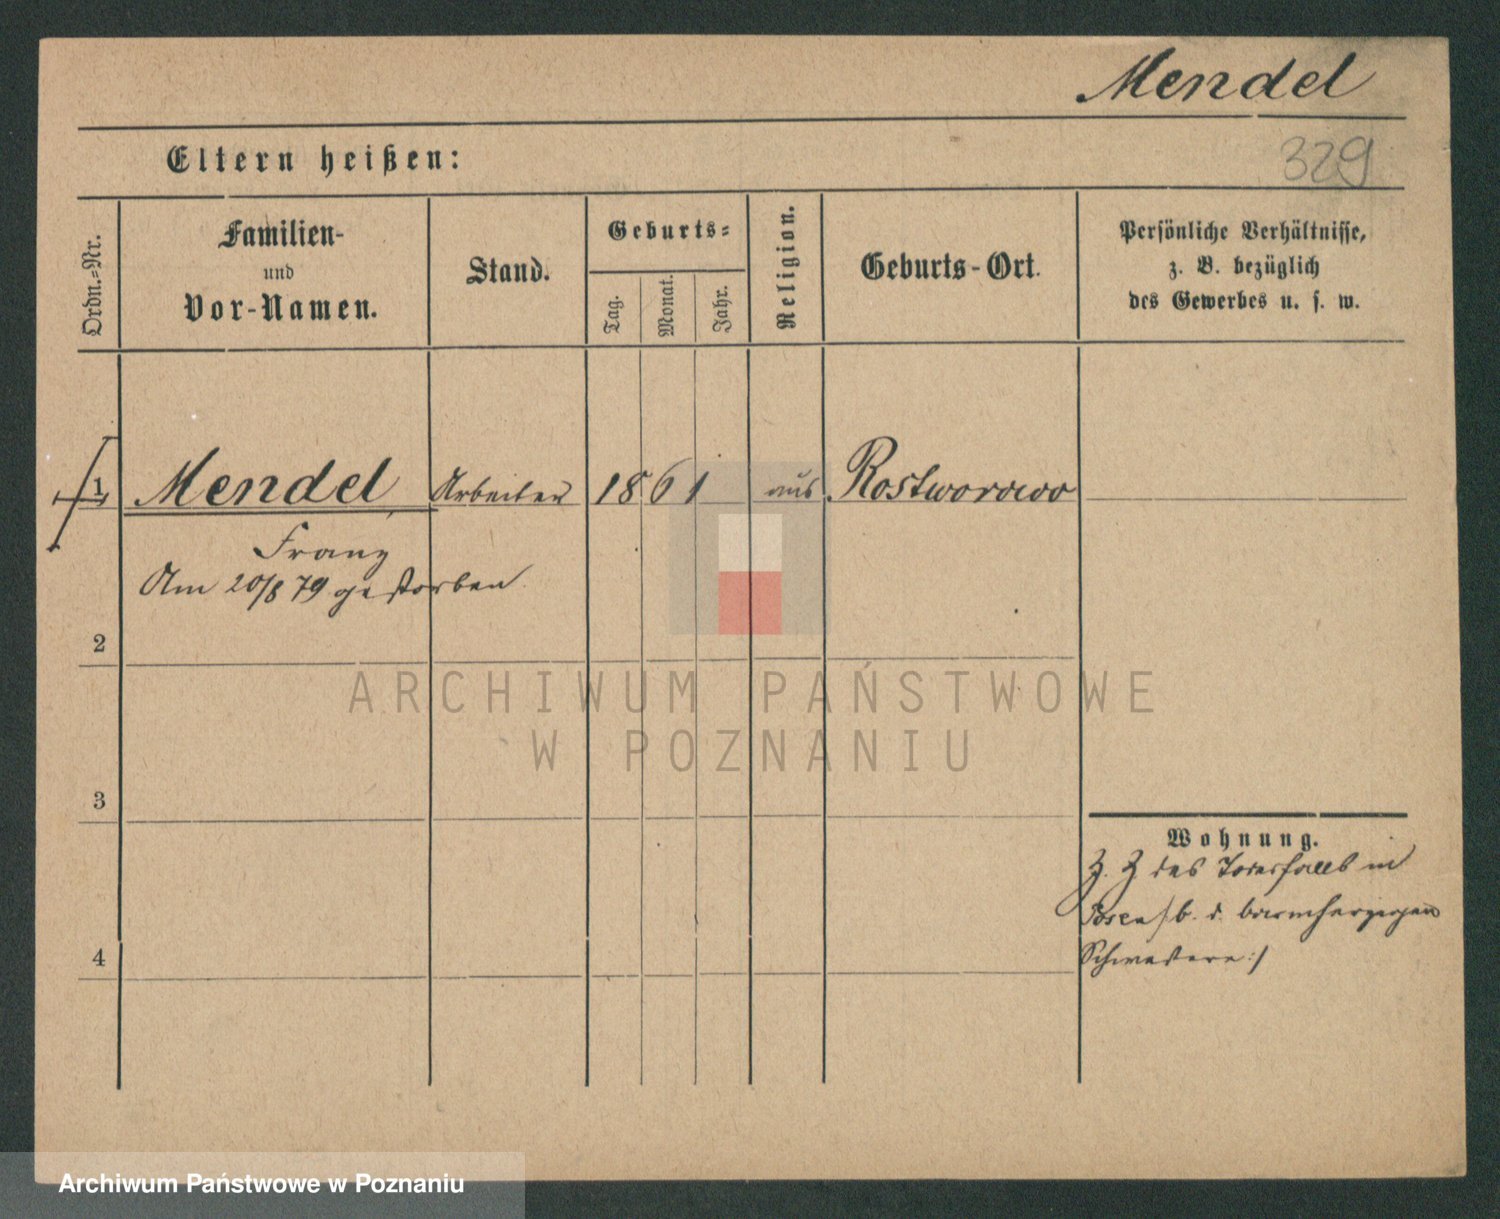 Mendel
329
Eltern heißen:
Ordn.=Nr.
Familien-
und
Vor-Namen.
Stand.
Geburts=
Tag.
Monat.
Jahr.
Religion.
Geburts-Ort.
Persönliche Verhältnisse,
z. B. bezüglich
des Gewerbes u. s. w.
1 Mendel Arbeiter 1861 aus Rostworowo
Franz
Am 20/8 79 gestorben
2
ARCHIWUM PAŃSTWOWE
W POZNANIU
3
Wohnung.
Z. Z des Todesfalls in
Posen /b. d. barmherzigen
Schwestern:/
4
Archiwum Państwowe w Poznaniu